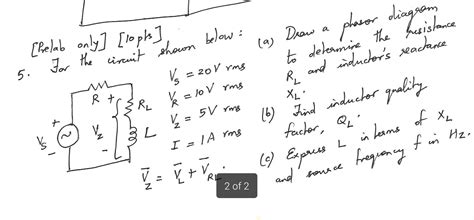 [Prelab only] [10 pts]
5. For the circuit shown below:
R
+
R_L
V_s
+
-
V_z
-
L
V_s = 20V rms
V_R = 10V rms
V_z = 5V rms
I = 1A rms
V̄_z = V̄_L + V̄_RL.
(a) Draw a phasor diagram
to determine the resistance
R_L and inductor's reactance
X_L.
(b) Find inductor quality
factor, Q_L.
(c) Express L in terms of X_L
and source frequency f in Hz.
2 of 2